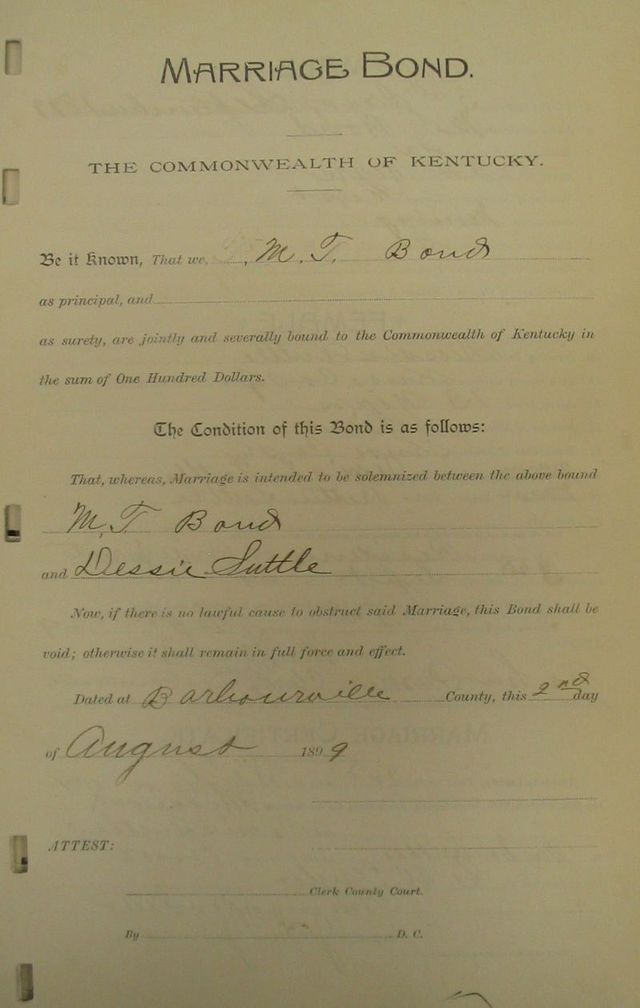 MARRIAGE BOND.
THE COMMONWEALTH OF KENTUCKY.
Be it Known, That we, M. T. Bond
as principal, and
as surety, are jointly and severally bound to the Commonwealth of Kentucky in
the sum of One Hundred Dollars.
The Condition of this Bond is as follows:
That, whereas, Marriage is intended to be solemnized between the above bound
M. T Bond
and Dessie Suttle
Now, if there is no lawful cause to obstruct said Marriage, this Bond shall be
void; otherwise it shall remain in full force and effect.
Dated at Barbourville County, this 2nd day
of August 1899
ATTEST:
Clerk County Court.
By D. C.